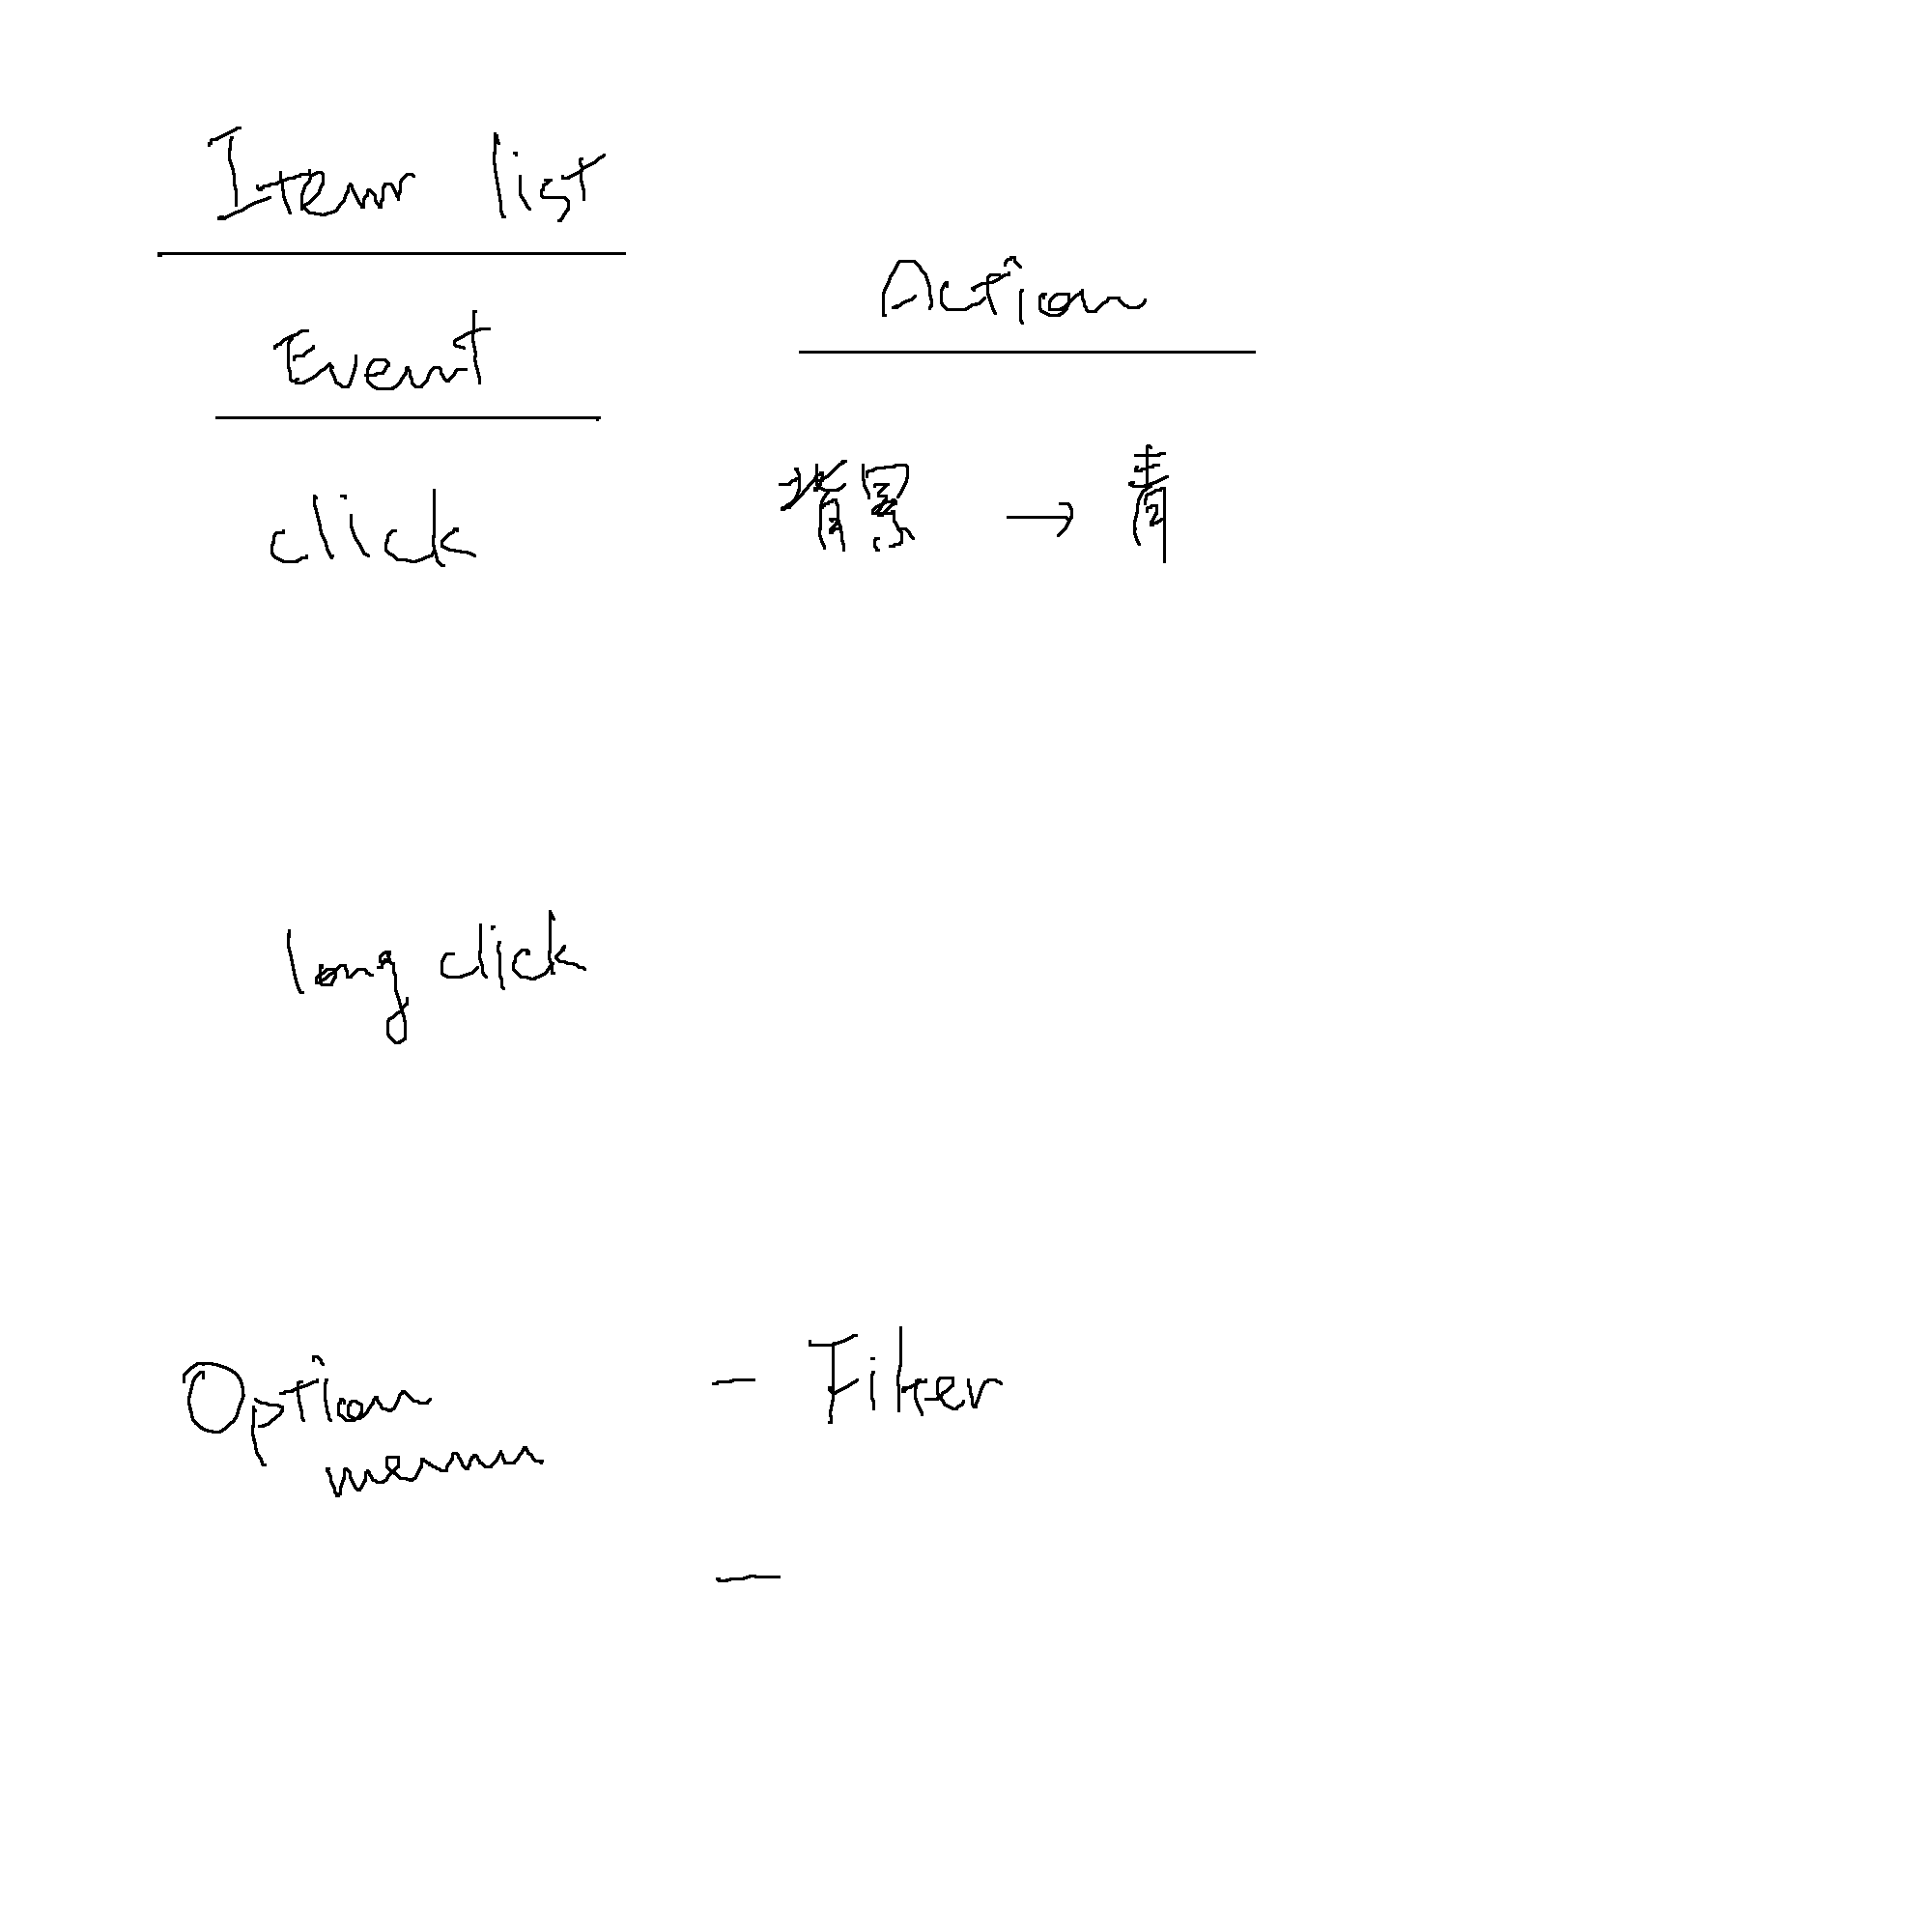 Item list
Event
Action
click
背景 → 青
long click
Option
menu
- Filter
-